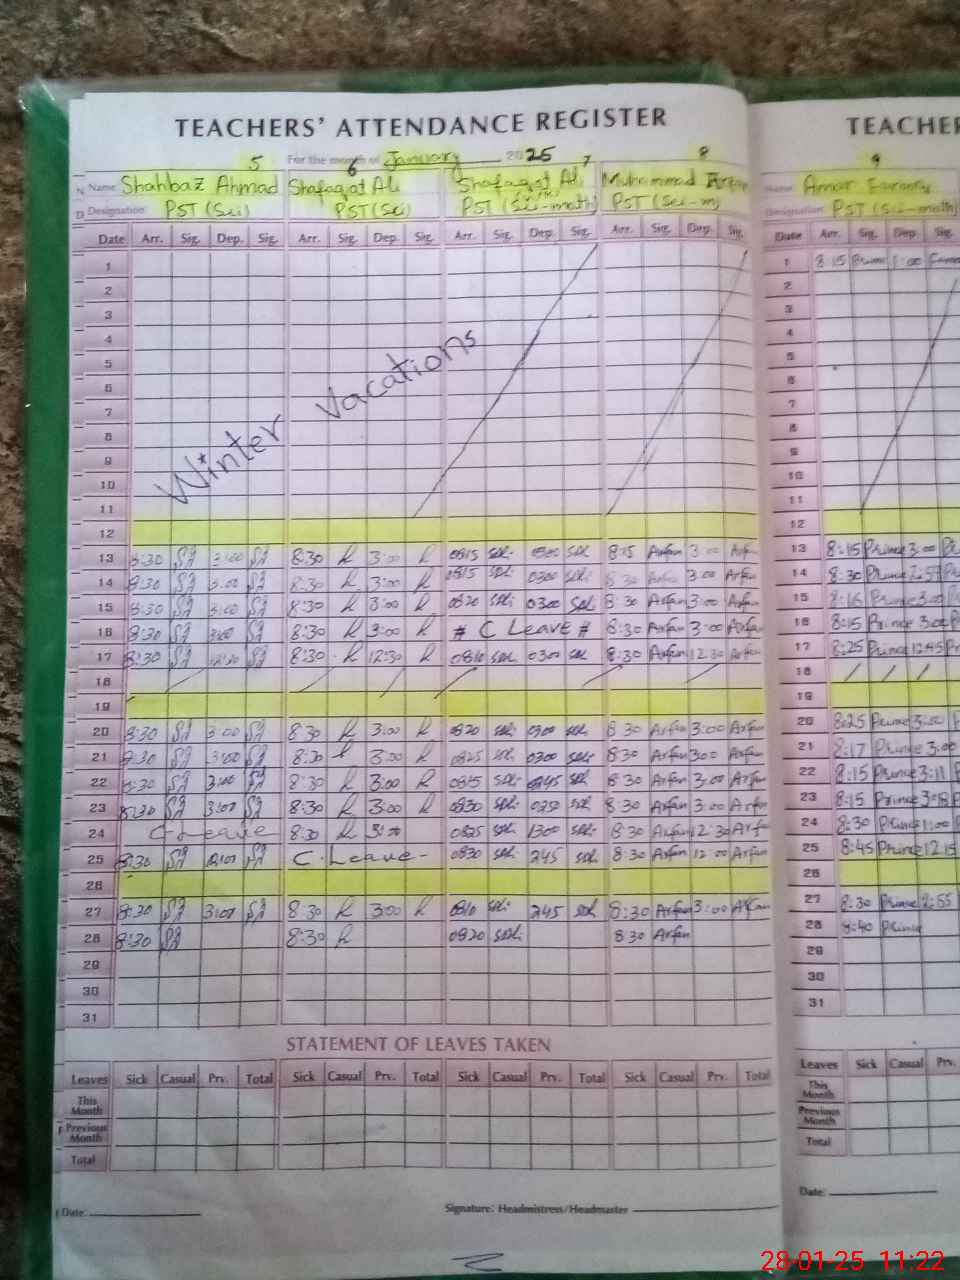 TEACHERS' ATTENDANCE REGISTER
For the month of January 2025
5 6 7 8
Name Shahbaz Ahmad Shafaqat Ali Shafaqat Ali Muhammad Arfan
Designation PST (Sci) PST (Sci) PST (Sci-math) PST (Sci-m)
Date Arr. Sig. Dep. Sig. Arr. Sig. Dep. Sig. Arr. Sig. Dep. Sig. Arr. Sig. Dep. Sig.
1
2
3
4
5
6
7
8
9
10
11
Winter Vacations
12
13 8:30 3:00 8:30 3:00 0815 0300 8:15 Arfan 3:00 Arfan
14 8:30 3:00 8:30 3:00 0815 0300 8:30 Arfan 3:00 Arfan
15 8:30 3:00 8:30 3:00 0820 0300 8:30 Arfan 3:00 Arfan
16 8:30 3:00 8:30 3:00 # C Leave # 8:30 Arfan 3:00 Arfan
17 8:30 12:30 8:30 12:30 0810 0300 8:30 Arfan 12:30 Arfan
18
19
20 8:30 3:00 8:30 3:00 0820 0300 8:30 Arfan 3:00 Arfan
21 8:30 3:00 8:30 3:00 0825 0300 8:30 Arfan 300 Arfan
22 8:30 3:00 8:30 3:00 0815 0245 8:30 Arfan 3:00 Arfan
23 8:30 3:00 8:30 3:00 0830 0250 8:30 Arfan 3:00 Arfan
24 C Leave 8:30 0825 1300 8:30 Arfan 12:30 Arfan
25 8:30 C. Leave - 0830 245 8:30 Arfan 12:00 Arfan
26
27 8:30 8:30 3:00 0810 245 8:30 Arfan 3:00 Arfan
28 8:30 8:30 0820 8:30 Arfan
29
30
31
STATEMENT OF LEAVES TAKEN
Leaves Sick Casual Prv. Total Sick Casual Prv. Total Sick Casual Prv. Total Sick Casual Prv. Total
This Month
Previous Month
Total
Date:
Signature: Headmistress/Headmaster
TEACHER
9
Name: Amar Farooq
Designation: PST (Sci-math)
Date Arr. Sig. Dep. Sig.
1 8:15 Prince 1:00
2
3
4
5
6
7
8
9
10
11
12
13 8:15 Prince 3:00
14 8:30 Prince 2:57
15 8:16 Prince 3:00
16 8:15 Prince 3:00
17 8:25 Prince 12:45
18
19
20 8:25 Prince 3:00
21 8:17 Prince 3:00
22 8:15 Prince 3:11
23 8:15 Prince 3:08
24 8:30 Prince 1:00
25 8:45 Prince 12:15
26
27 8:30 Prince 2:55
28 8:40 Prince
29
30
31
Leaves Sick Casual Prv.
This Month
Previous Month
Total
Date:
28-01-25 11:22